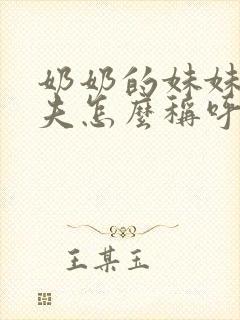 奶奶的妹妹
夫怎麼稱呼
王某玉